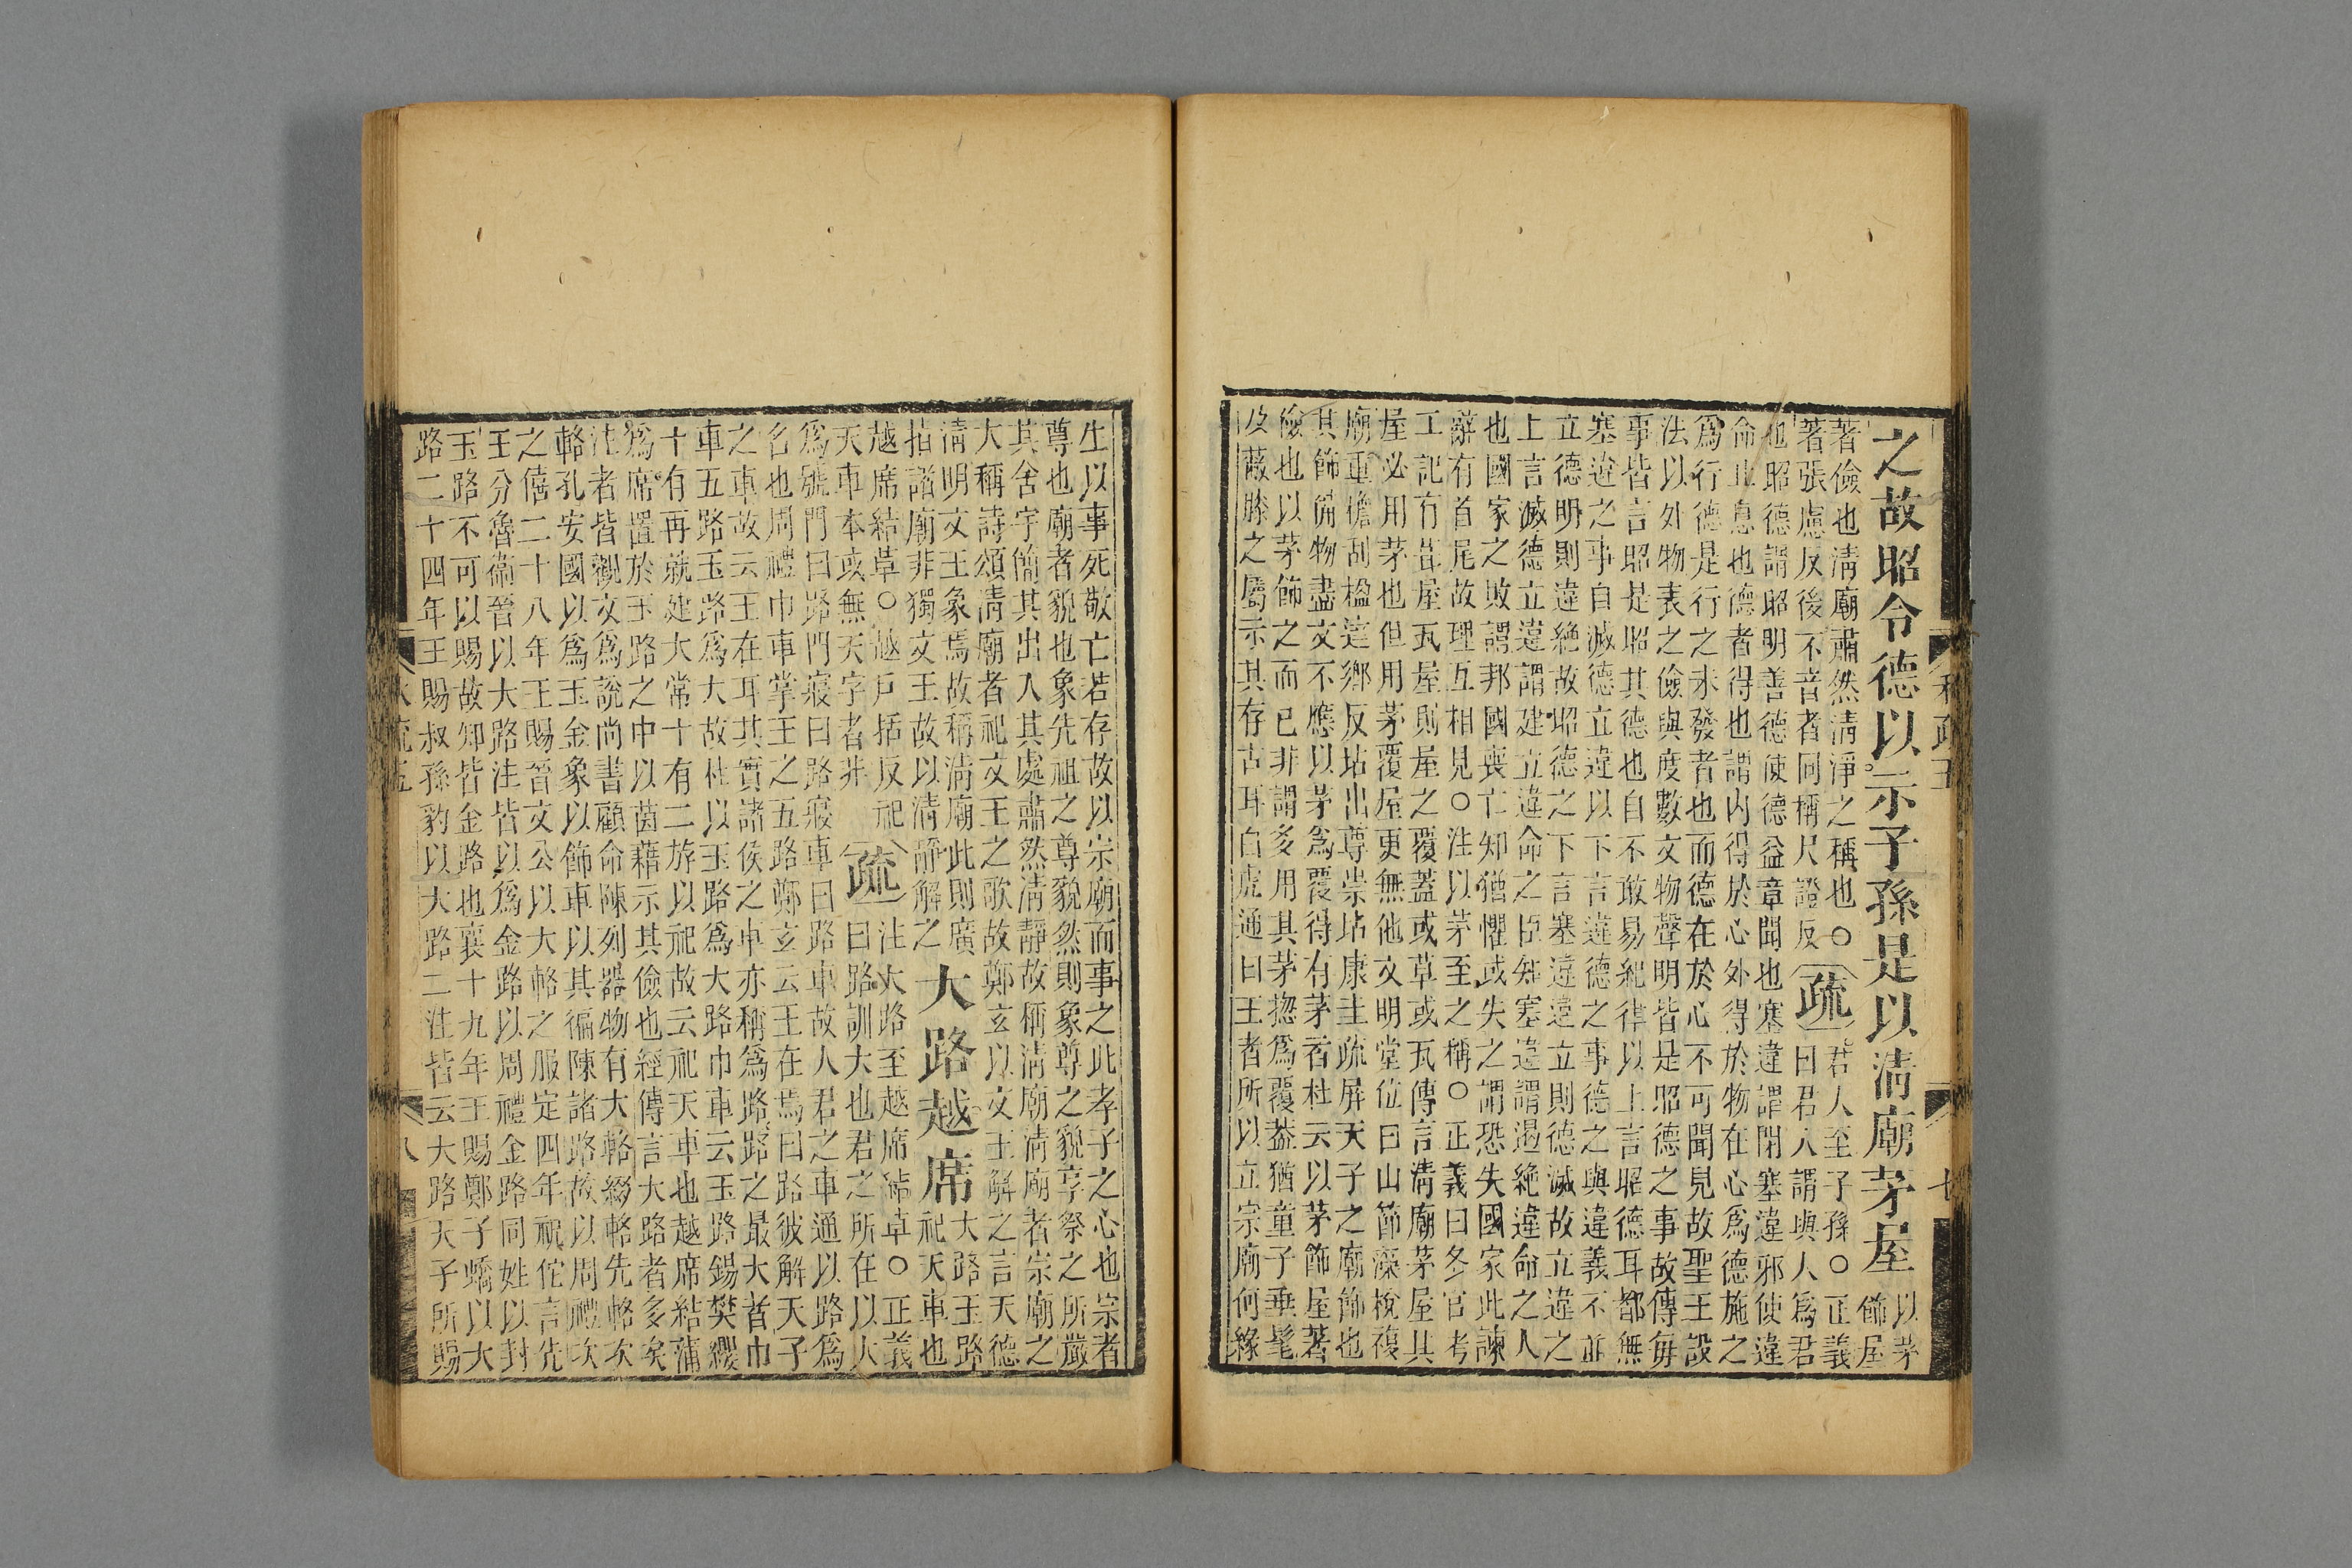 之故昭令德以示子孫是以清廟茅屋以茅
飾屋
著儉也清廟肅然清淨之稱也○
著張慮反後不音者同稱尺證反
疏
君人至子孫○正義
曰君人謂與人爲君
也昭德謂昭明善德使德益章聞也塞違謂閉塞違邪使違
命止息也德者得也謂内得於心外得於物在心爲德施之
爲行德是行之未發者也而德在於心不可聞見故聖王設
法以外物表之儉與度數文物聲明皆是昭德之事故傳每
事皆言昭是昭其德也自不敢易紀律以上言昭德耳都無
塞違之事自滅德立違以下言違德之事德之與違義不並
立德明則違絶故昭德之下言塞違違立則德滅故立違之
上言滅德立違謂建立違命之臣知塞違謂遏絶違命之人
也國家之敗謂邦國喪亡知猶懼或失之謂恐失國家此諫
辭有首尾故理互相見○注以茅至之稱○正義曰冬官考
工記有葺屋瓦屋則屋之覆蓋或草或瓦傳言清廟茅屋其
屋必用茅也但用茅覆屋更無他文明堂位曰山節藻梲複
廟重檐刮楹逹鄉反坫出尊崇坫康圭疏屏天子之廟飾也
其飾備物盡文不應以茅爲覆得有茅者杜云以茅飾屋著
儉也以茅飾之而已非謂多用其茅揔爲覆葢猶童子垂髦
及蔽膝之屬示其存古耳白虎通曰王者所以立宗廟何緣
生以事死敬亡若存故以宗廟而事之此孝子之心也宗者
尊也廟者貌也象先祖之尊貌然則象尊之貌享祭之所嚴
其舍宇簡其出入其處肅然清靜故稱清廟清廟者宗廟之
大稱詩頌清廟者祀文王之歌故鄭玄以文王解之言天德
清明文王象焉故稱清廟此則廣
指諸廟非獨文王故以清靜解之
大路越席
大路玉路
祀天車也
越席結草○越戸括反祀
天車本或無天字者非
疏
注大路至越席結草○正義
曰路訓大也君之所在以大
爲號門曰路門寢曰路寢車曰路車故人君之車通以路爲
名也周禮巾車掌王之五路鄭玄云王在焉曰路彼解天子
之車故云王在耳其實諸侯之車亦稱爲路路之最大者巾
車五路玉路爲大故杜以玉路爲大路巾車云玉路錫樊纓
十有再就建大常十有二斿以祀故云祀天車也越席結蒲
爲席置於玉路之中以茵藉示其儉也經傳言大路者多矣
注者皆觀文爲說尚書顧命陳列器物有大輅綴輅先輅次
輅孔安國以爲玉金象以飾車以其徧陳諸路故以周禮次
之僖二十八年王賜晉文公以大輅之服定四年祝佗言先
王分魯衞晉以大路注皆以爲金路以周禮金路同姓以封
玉路不可以賜故知皆金路也襄十九年王賜鄭子蟜以大
路二十四年王賜叔孫豹以大路二注皆云大路天子所賜
八